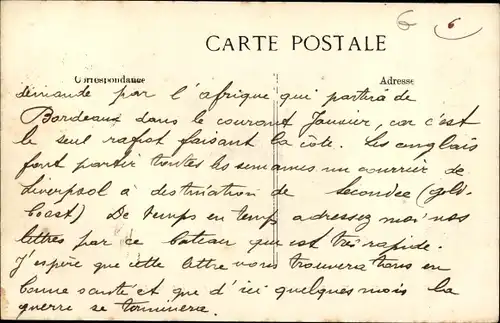 6 6
CARTE POSTALE
Correspondance Adresse
demande par l'afrique qui partira de
Bordeaux dans le courant Janvier, car c'est
le seul rafiot faisant la côte. Les anglais
font partir toutes les semaines un courrier de
Liverpool à destination de Secondee (gold-
Coast) De temps en temps adressez moi vos
lettres par ce bateau qui est très rapide.
J'espère que cette lettre vous trouvera tous en
bonne santé et que d'ici quelques mois la
guerre se terminera.